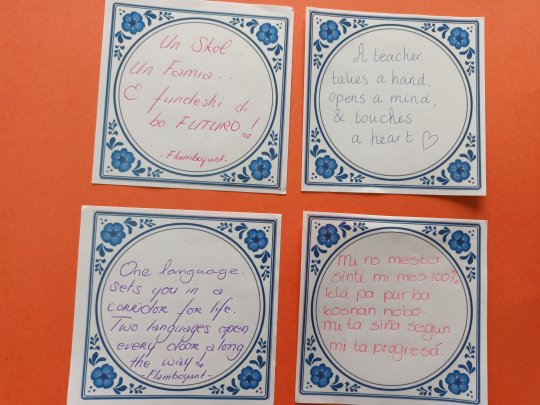 Un Skol..
Un Famia..
E fundeshi di
bo FUTURO!
-Flamboyant-
A teacher
takes a hand,
opens a mind,
& touches
a heart ♡
One language
sets you in a
corridor for life.
Two languages open
every door along
the way!
-Flamboyant-
Mi no mester
sinti mi mes 100%
kla pa purba
kosnan nobo.
mi ta siña segun
mi ta progresá.